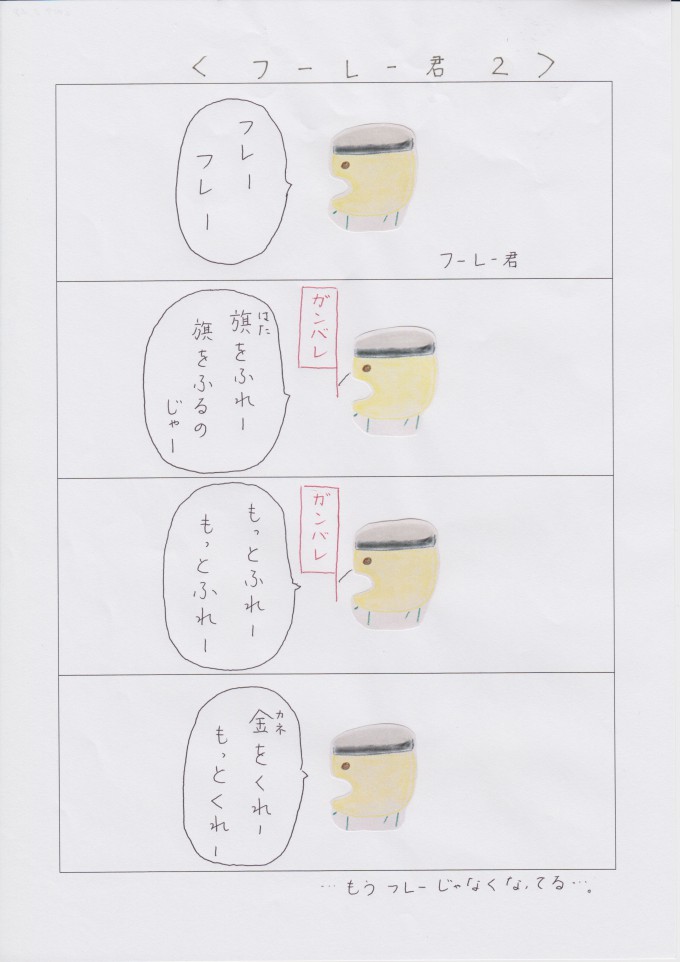 < フーレー君 2 >
フレー
フレー
フーレー君
ガンバレ
旗をふれー
はた
旗をふるの
じゃー
ガンバレ
もっとふれー
もっとふれー
金をくれー
カネ
もっとくれー
…もうフレーじゃなくなってる…。